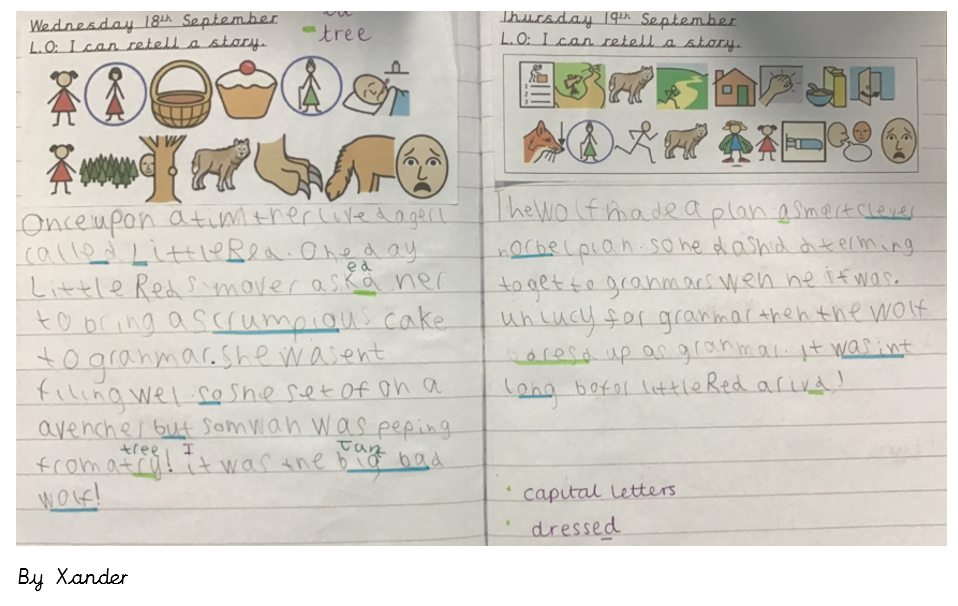 Wednesday 18th September
L.O: I can retell a story.
tree
Once upon a tim ther lived a gerl
called Little Red. One day
Little Reds mover askd her
ed
to bring a scrumpious cake
to granmar. she wasent
filing wel. so she set of on a
avencher but somwan was peping
tree I
from a try! it was the big bad
wolf!
Thursday 19th September
L.O: I can retell a story.
The wolf made a plan a smart clever
plan. so he dashd
to get to granmars wen he it was.
unlucy for granmar then the wolf
up as granmar. it was int
long befor little Red arivd!
capital letters
dressed
By Xander